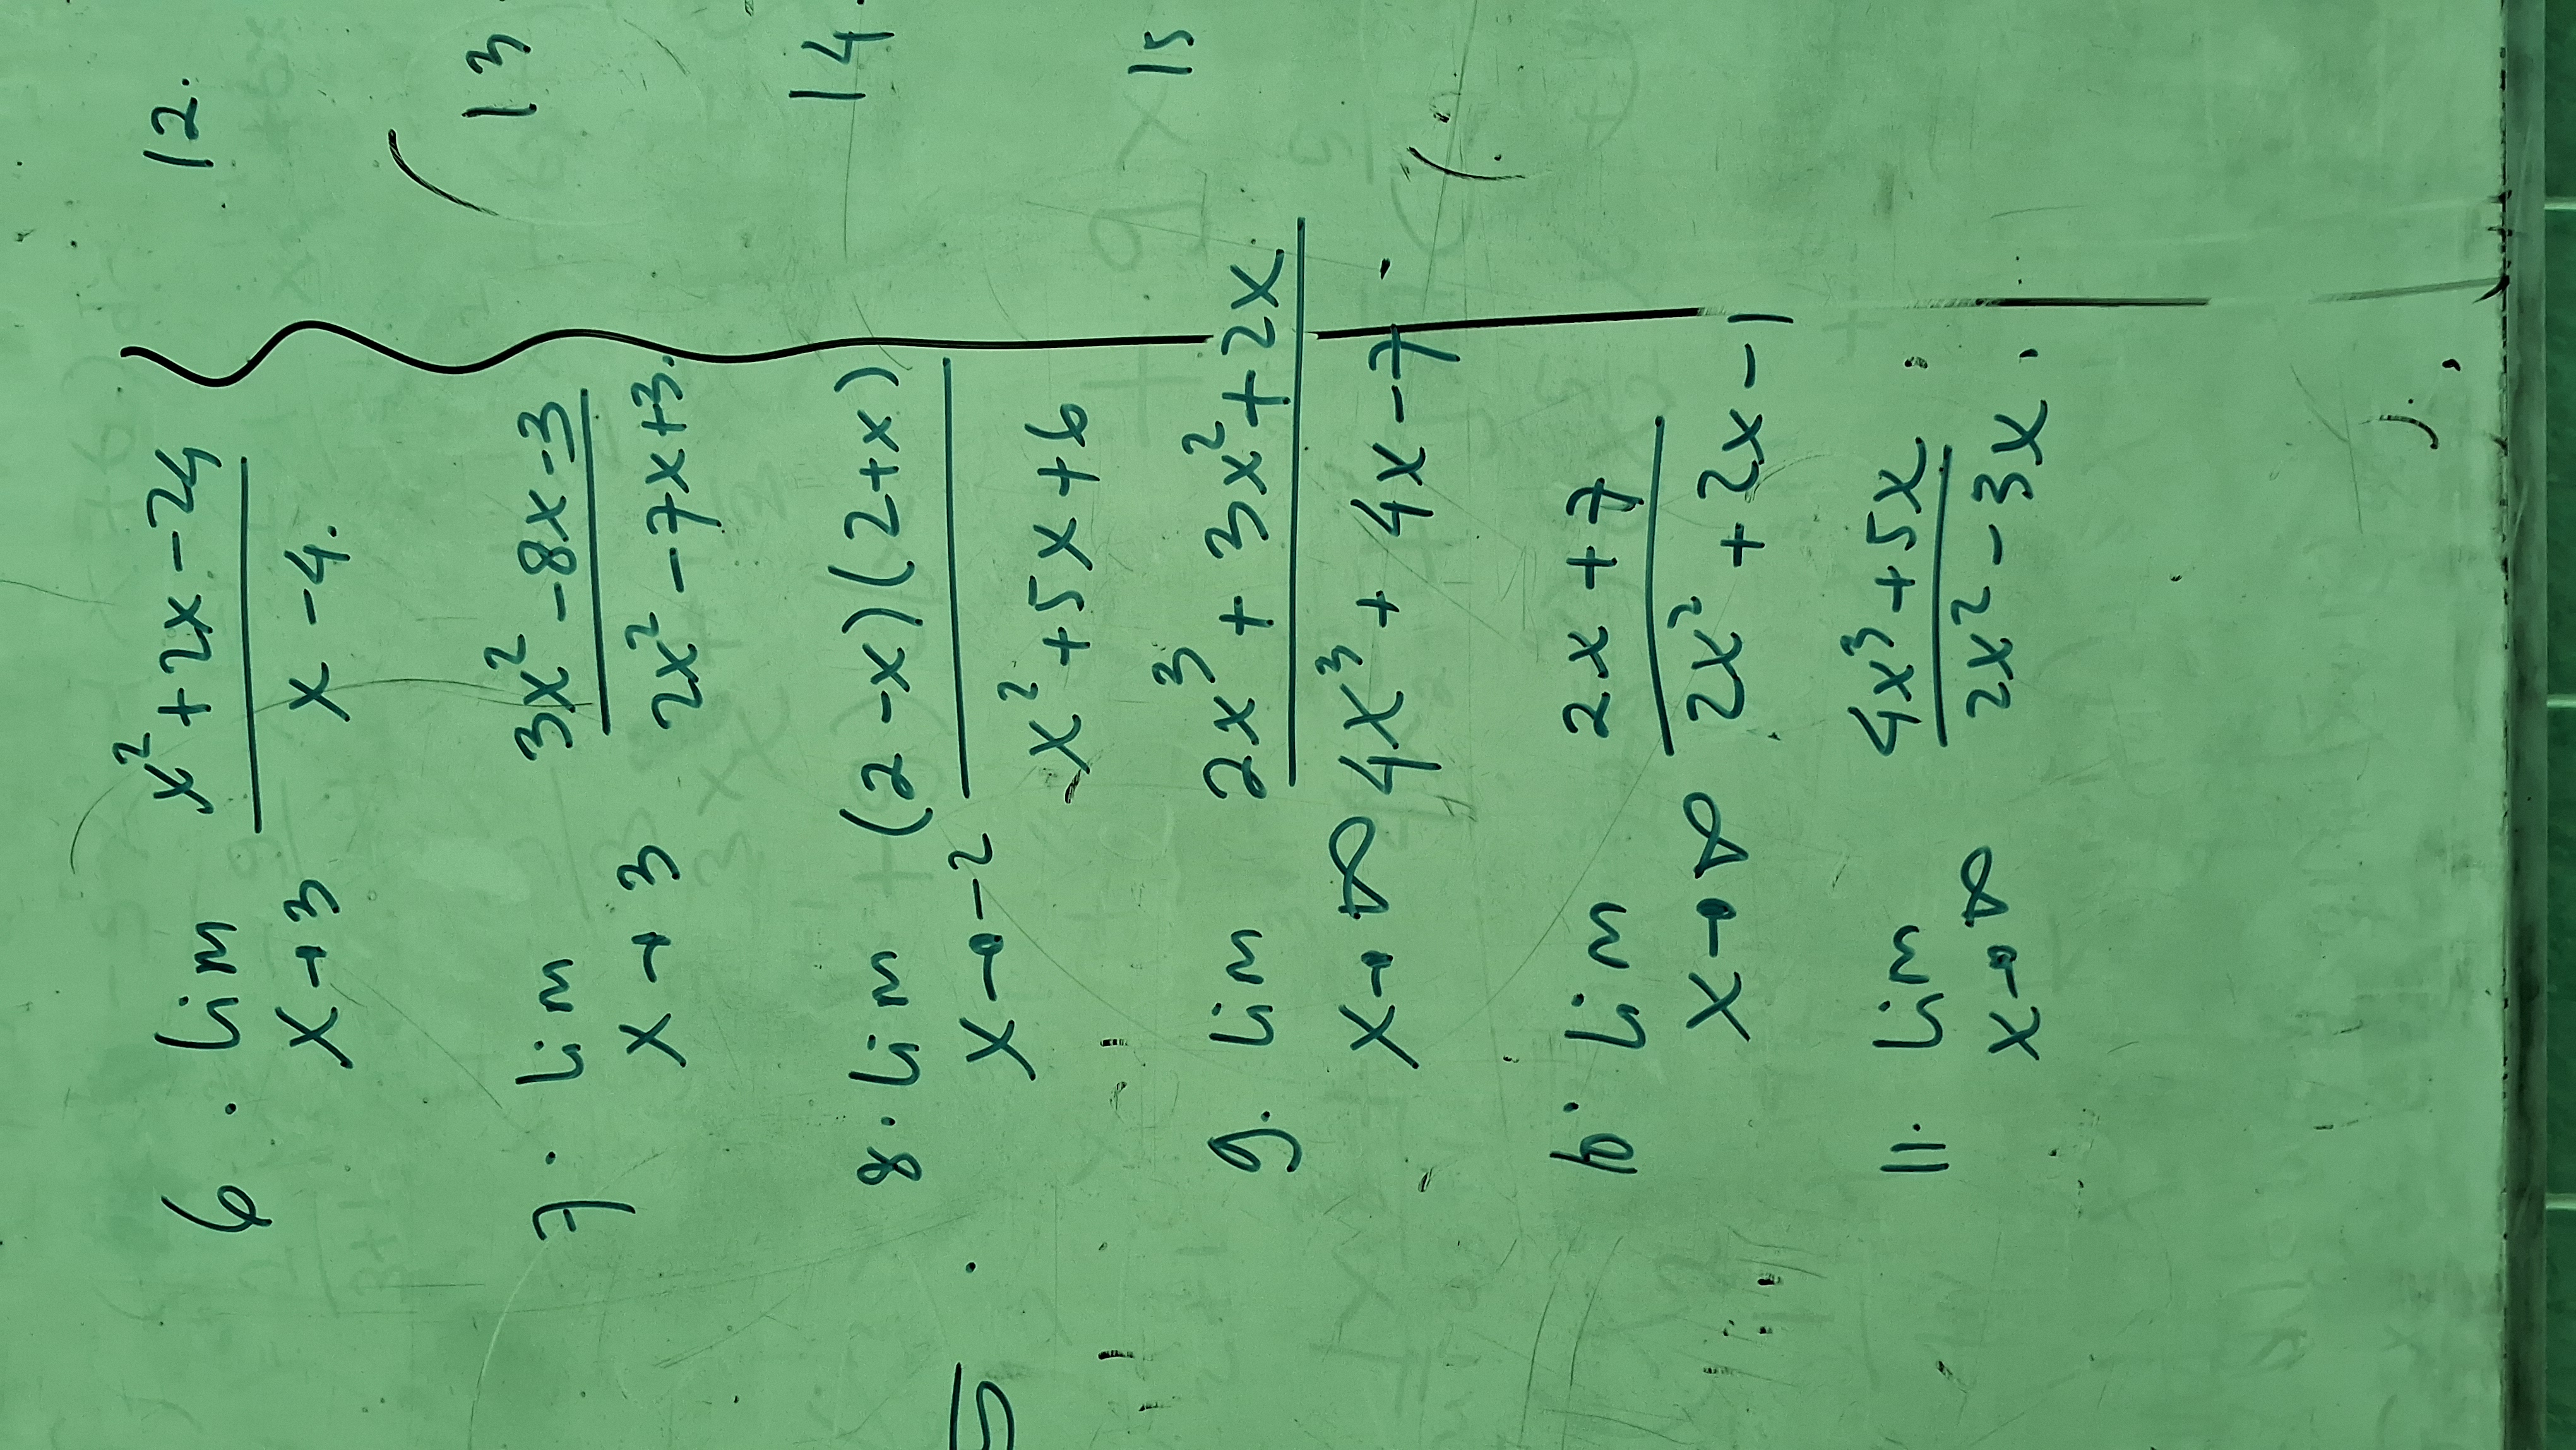 6. lim x²+2x-24
x→3 x-4.
7. lim 3x²-8x-3
x→3 2x²-7x+3.
8. lim (2-x)(2+x)
x→-2 x²+5x+6
9. lim 2x³+3x²+2x
x→∞ 4x³+4x-7
10. lim 2x+7
x→∞ 2x²+2x-1
11. lim 4x³+5x
x→∞ 2x²-3x.
12.
13
14.
15